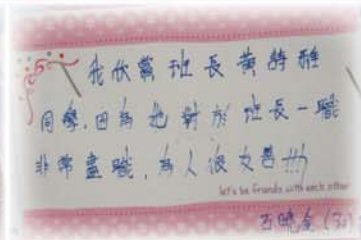 我欣賞班長黃詩雅
同學，因為她對於班長一職
非常盡職，為人很友善
let's be friends with each other
(30)